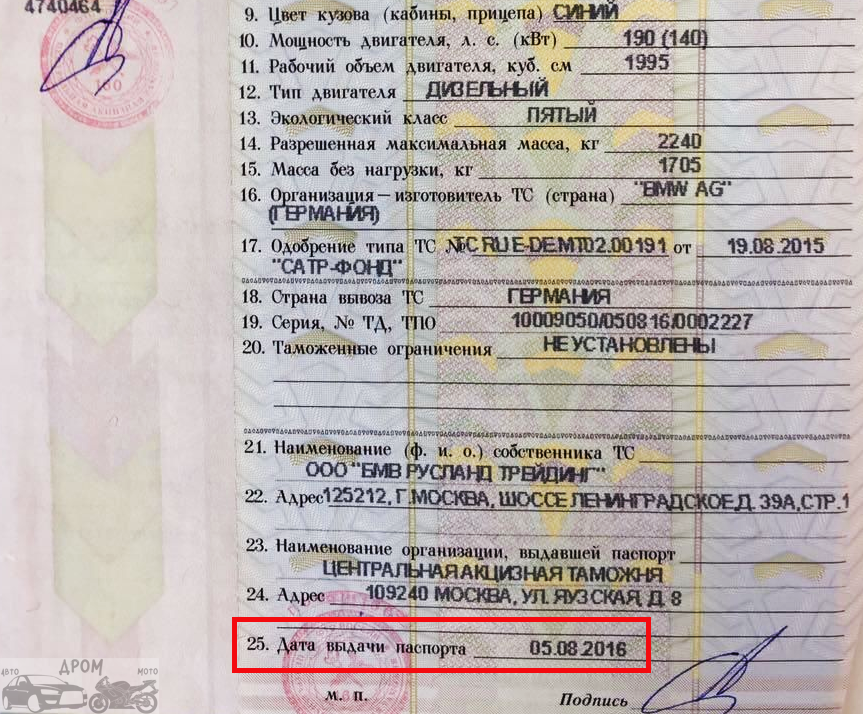 4740464
9. Цвет кузова (кабины, прицепа) СИНИЙ
10. Мощность двигателя, л. с. (кВт) 190 (140)
11. Рабочий объем двигателя, куб. см 1995
12. Тип двигателя ДИЗЕЛЬНЫЙ
13. Экологический класс ПЯТЫЙ
14. Разрешенная максимальная масса, кг 2240
15. Масса без нагрузки, кг 1705
16. Организация — изготовитель ТС (страна) "BMW AG"
(ГЕРМАНИЯ)
17. Одобрение типа ТС № TC RU E-DE.MT02.00191 от 19.08.2015
"САТР-ФОНД"
18. Страна вывоза ТС ГЕРМАНИЯ
19. Серия, № ТД, ТПО 10009050/050816/0002227
20. Таможенные ограничения НЕ УСТАНОВЛЕНЫ
21. Наименование (ф. и. о.) собственника ТС
ООО "БМВ РУСЛАНД ТРЕЙДИНГ"
22. Адрес 125212, Г.МОСКВА, ШОССЕ ЛЕНИНГРАДСКОЕ,Д. 39А,СТР.1
23. Наименование организации, выдавшей паспорт
ЦЕНТРАЛЬНАЯ АКЦИЗНАЯ ТАМОЖНЯ
24. Адрес 109240 МОСКВА, УЛ. ЯУЗСКАЯ, Д. 8
25. Дата выдачи паспорта 05.08.2016
м. п. Подпись
АВТО ДРОМ МОТО